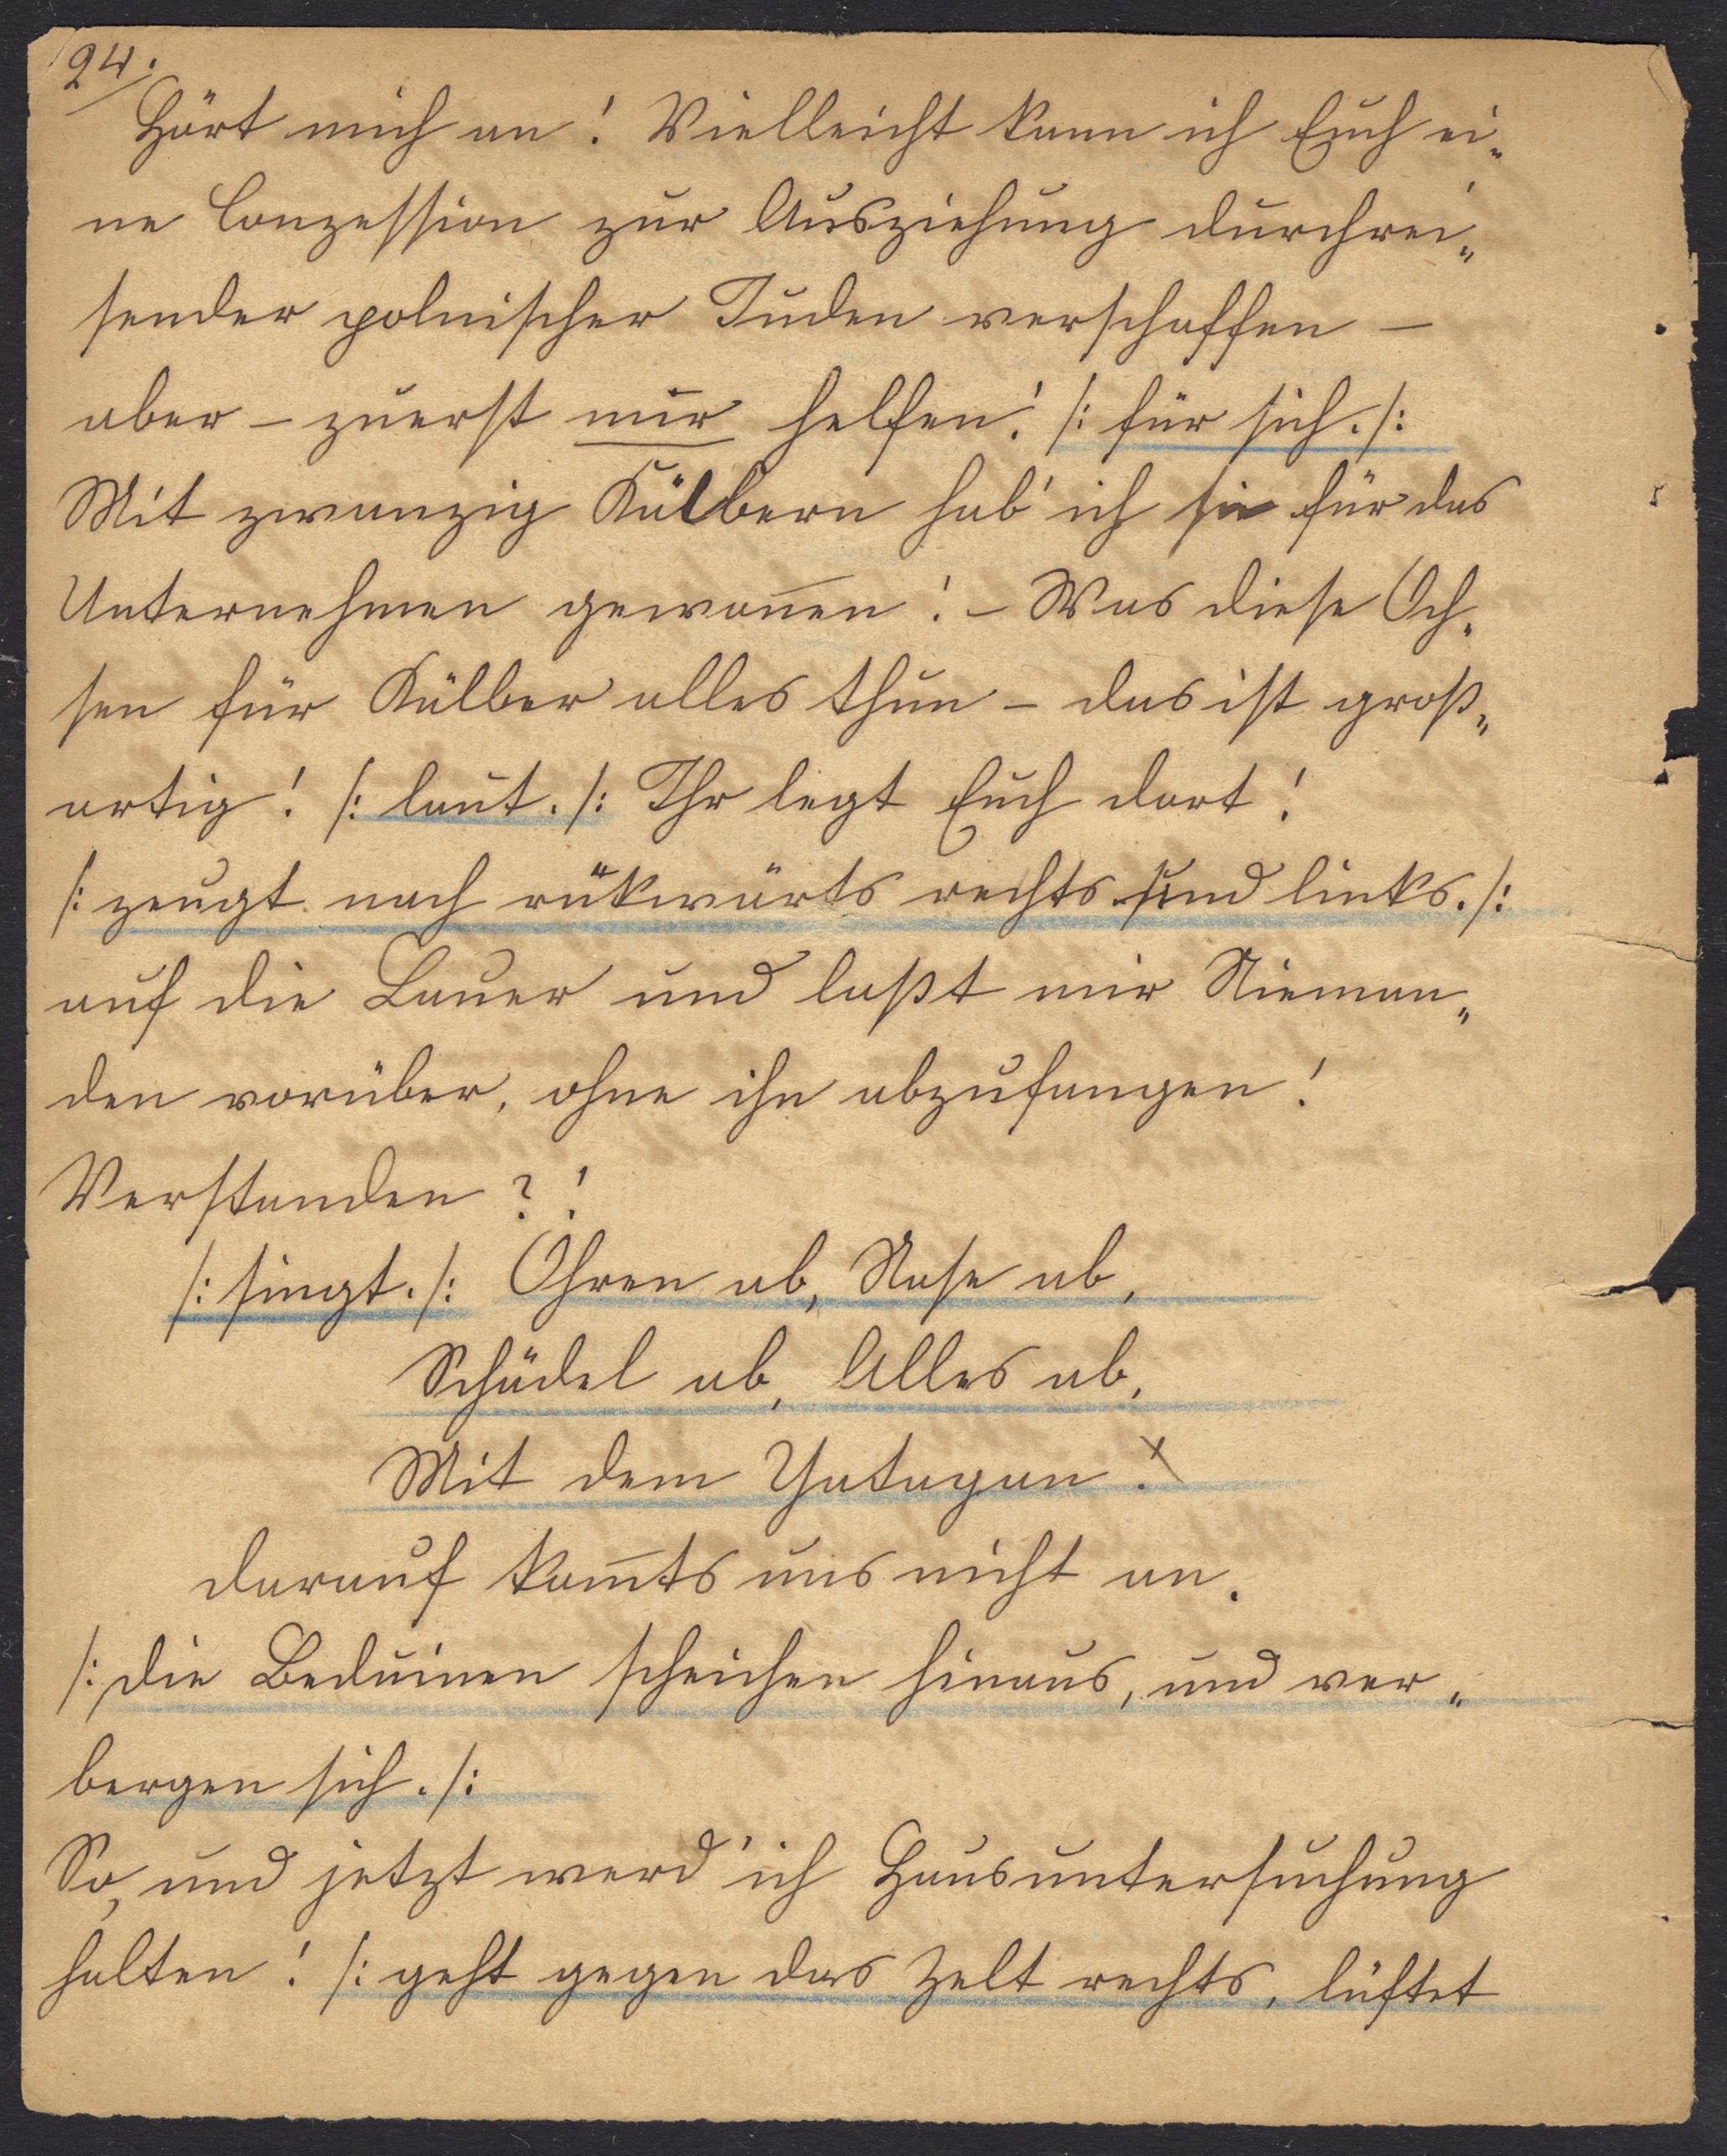 24.
Hört mich an! Vielleicht kann ich Euch ei„
ne Conzession zur Ausziehung durchrei„
sender polnischer Juden verschaffen –
aber – zuerst mir helfen! /: für sich. /:
Mit zwanzig Kälbern hab' ich sie für das
Unternehmen gewon̄en! – Was diese Och„
sen für Kälber alles thun – das ist groß„
artig! /: laut. /: Ihr legt Euch dort!
/: zeugt nach rükwärts rechts und links. /:
auf die Lauer und laßt mir Nieman„
den vorüber, ohne ihn abzufangen!
Verstanden?!
/: singt. /: Ohren ab, Nase ab,
Schädel ab, Alles ab,
Mit dem Yatagan.
darauf kom̄ts uns nicht an.
/: die Beduinen schleichen hinaus, und ver„
bergen sich. /:
So, und jetzt werd' ich Hausuntersuchung
halten! /: geht gegen das Zelt rechts, lüftet